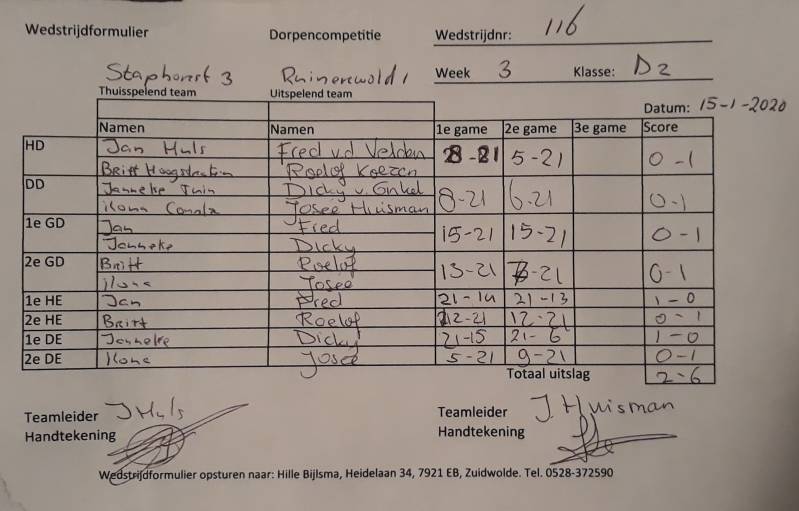 Wedstrijdformulier Dorpencompetitie Wedstrijdnr: 116
Staphorst 3 Ruinerwold 1 Week 3 Klasse: D2
Thuisspelend team Uitspelend team
Datum: 15-1-2020
Namen Namen 1e game 2e game 3e game Score
HD Jan Huls Fred v.d Velden 8-21 5-21 0-1
Britt Roelof
DD Janneke Dicky v. Ginkel 8-21 6-21 0-1
Ilona Josee Huisman
1e GD Jan Fred 15-21 15-21 0-1
Janneke Dicky
2e GD Britt Roelof 13-21 -21 0-1
Ilona Josee
1e HE Jan Fred 21-14 21-13 1-0
2e HE Britt Roelof 12-21 12-21 0-1
1e DE Janneke Dicky 21-15 21-6 1-0
2e DE Ilona Josee 5-21 9-21 0-1
Totaal uitslag 2-6
Teamleider J Huls Teamleider J. Huisman
Handtekening Handtekening
Wedstrijdformulier opsturen naar: Hille Bijlsma, Heidelaan 34, 7921 EB, Zuidwolde. Tel. 0528-372590